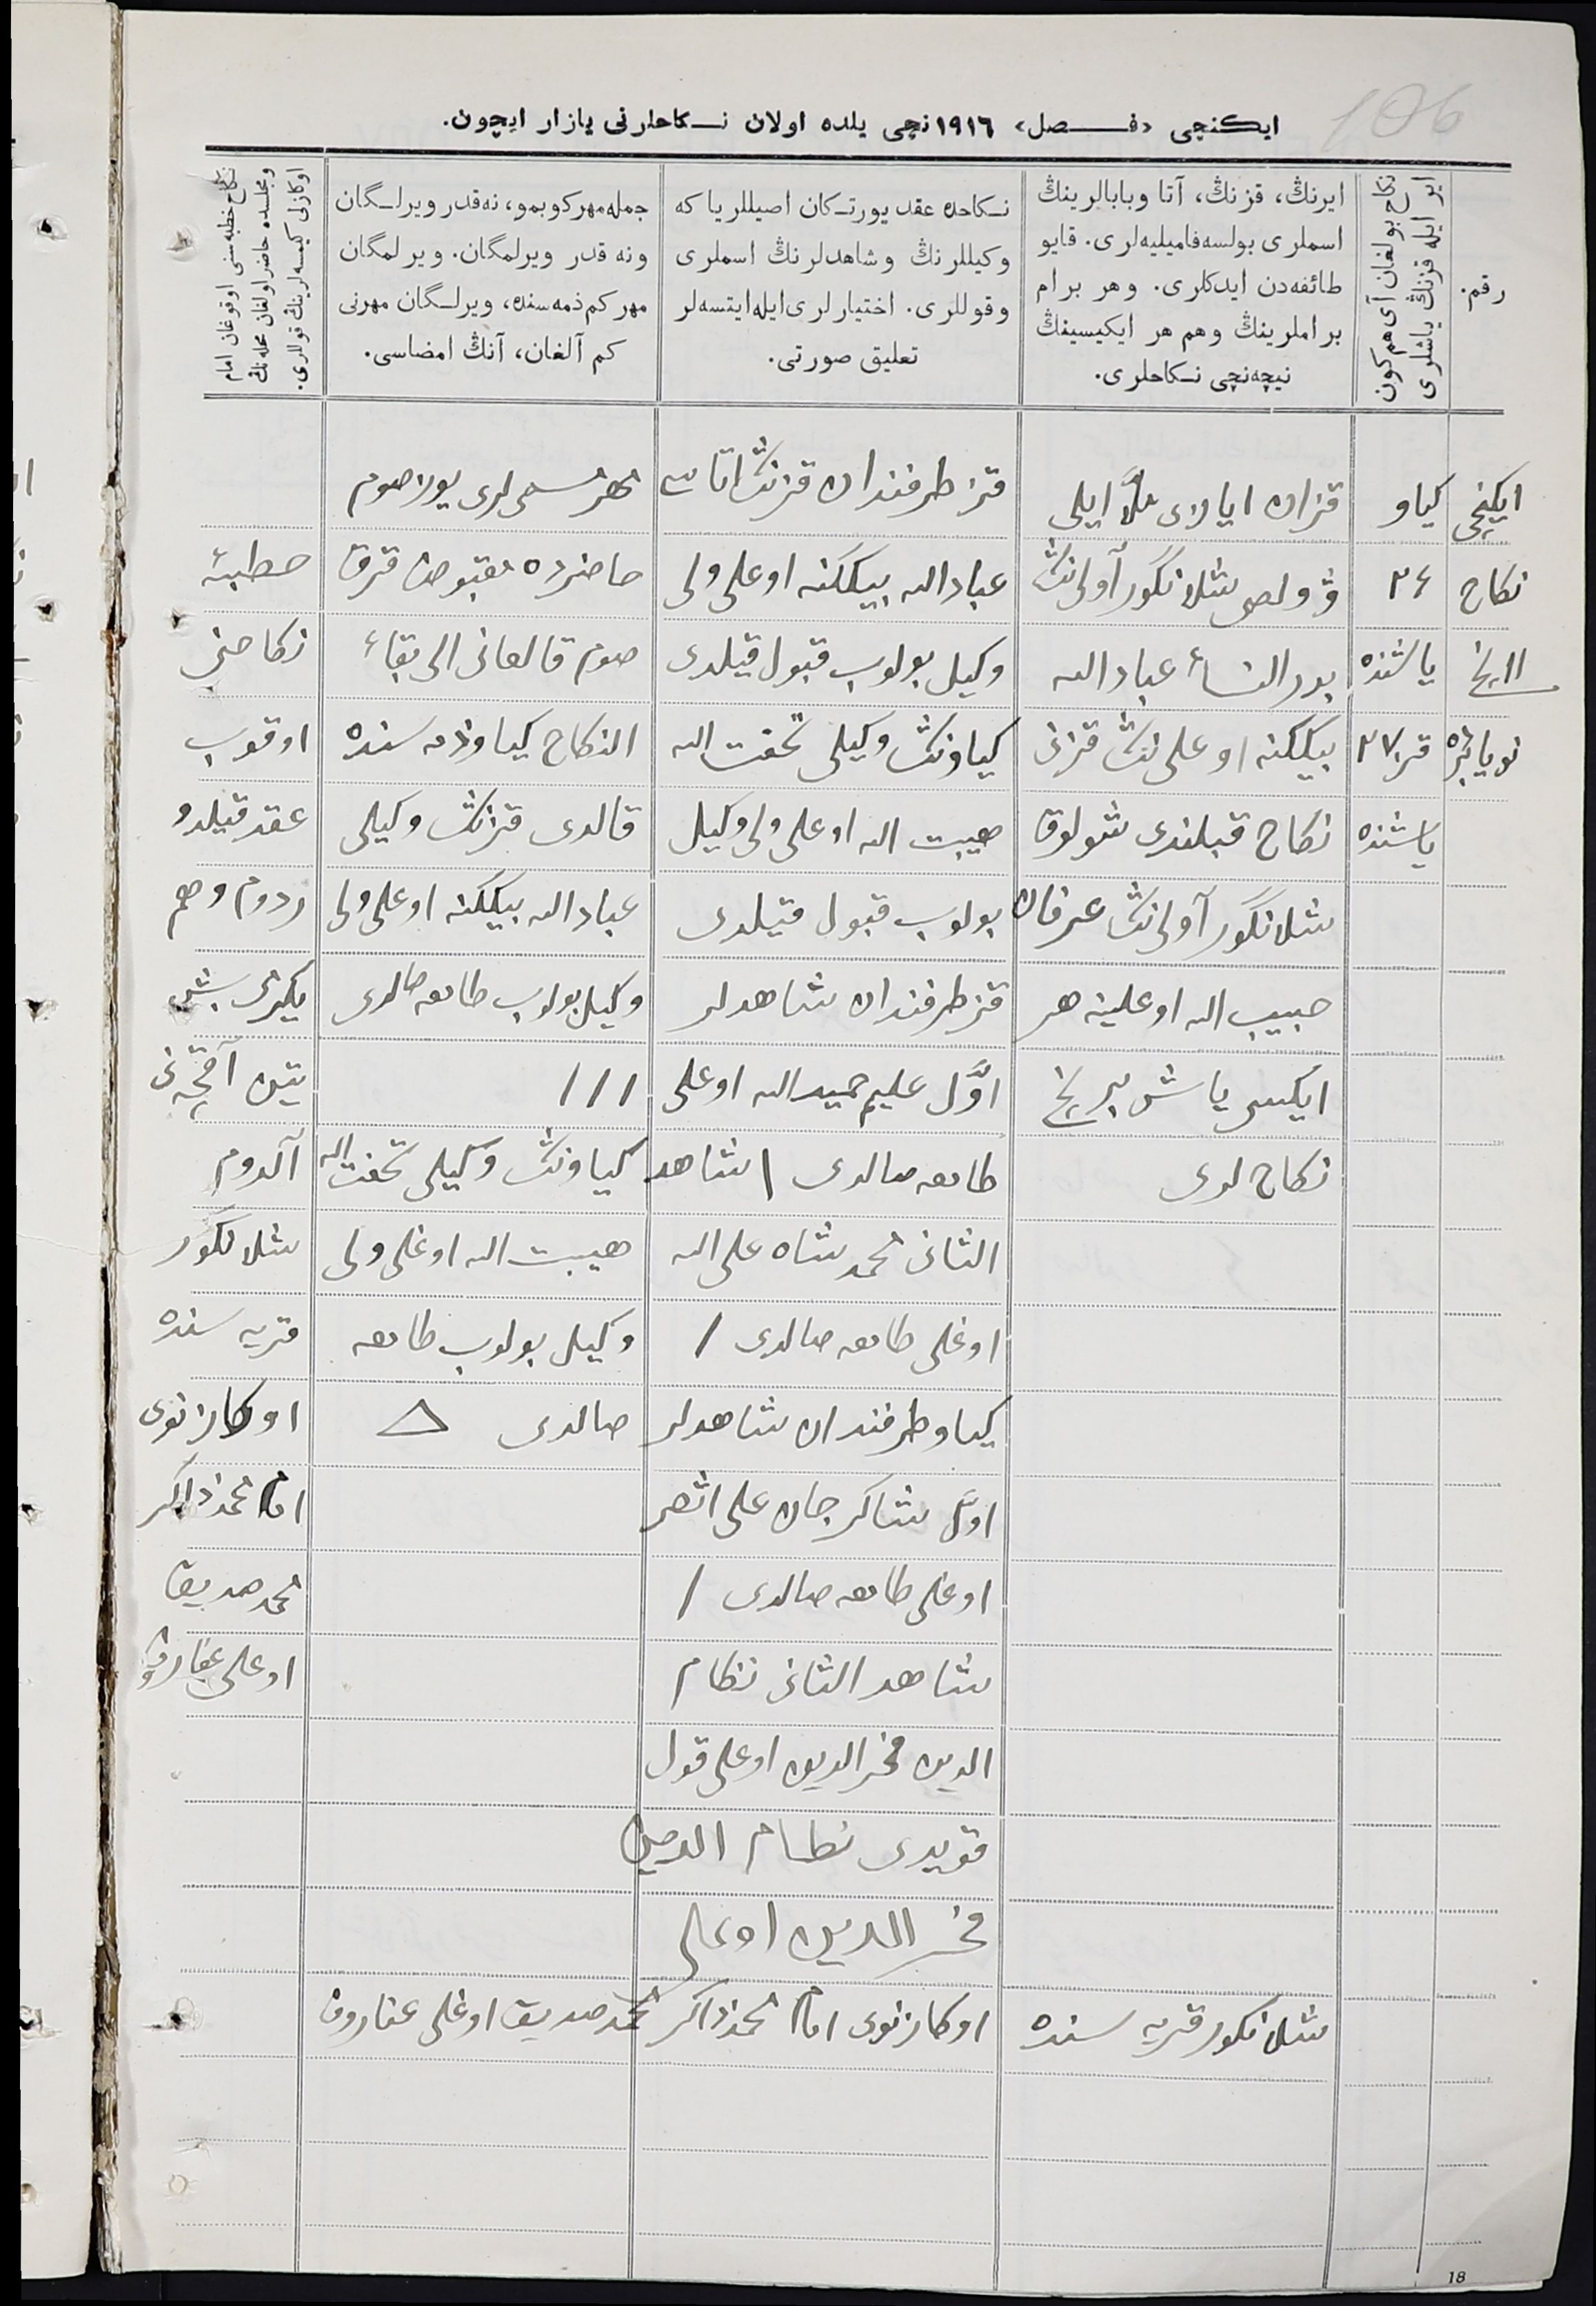 106
ایكنچی «فصل» ١٩١٦ نچی یلده اولان نكاحلرنی یازار ایچون.
رقم.
نكاح بولغان آی هم كون
ایر ایله قزنڭ یاشلری
ایرنڭ، قزنڭ، آتا وبابالرینڭ
اسملری بولسه فامیلیه‌لری. قایو
طائفه‌دن ایدكلری. وهر برام
براملرینڭ وهم هر ایكیسینڭ
نیچه‌نچی نكاحلری.
نكاحده عقد یورتكان اصیللر یا كه
وكیللرنڭ وشاهدلرنڭ اسملری
وقوللری. اختیارلری ایله ایتسه‌لر
تعلیق صورتی.
جمله مهر كوبمو، نه قدر ویرلگان
ونه قدر ویرلمگان. ویرلمگان
مهر كم ذمه‌سنده، ویرلگان مهرنی
كم آلغان، آنڭ امضاسی.
نكاح خطبه‌سنی اوقوغان امام
ومجلسده حاضر اولغان محله‌نڭ
اوكازلی كیمسه‌لرینڭ قوللری.
ایكنچی
نكاح
١١ نچی
نویابرده
كیاو
٢٤
یاشنده
قز ٢٧
یاشنده
قزان ایازی ایلی
شلانگور آولی‌نڭ
بدر النساء عباد الله
بیككنه اوغلی‌نڭ قزنی
نكاح قیلندی شولوق
شلانگور آولی‌نڭ عرفان
حبیب الله اوغلینه هر
ایكسی یاش برنچی
نكاح لری
قز طرفندان قزنڭ اتاسی
عباد الله بیككنه اوغلی ولی
وكیل بولوب قبول قیلدی
كیاونڭ وكیلی تحفت الله
هیبت الله اوغلی ولی وكیل
بولوب قبول قیلدی
قز طرفندان شاهدلر
اوّل علیم حمید الله اوغلی
طامغه صالدی / شاهد
الثانی محمد شاه علی الله
اوغلی طامغه صالدی /
كیاو طرفندان شاهدلر
اوّل شاكر جان علی اثهر
اوغلی طامغه صالدی /
شاهد الثانی نظام
الدین فخر الدین اوغلی قول
قویدی نظام الدین
فخر الدین اوغلی
مهر مسمی لری یوز صوم
حاضرده مقبوض قرق
صوم قالغانی الی بقاء
النكاح كیاو ذمه سنده
قالدی قزنڭ وكیلی
عباد الله بیككنه اوغلی ولی
وكیل بولوب طامغه صالدی
///
كیاونڭ وكیلی تحفت الله
هیبت الله اوغلی ولی
وكیل بولوب طامغه
صالدی
خطبهٔ
نكاحنی
اوقوب
عقد قیلدو
ردوم وهم
یكرمی بش
تین آقچه نی
آلدوم
شلانگور
قریه سنده
اوكازنوی
امام محمد ذاكر
محمد صدیق
اوغلی غفاروف
شلانگور قریه سنده اوكازنوی امام محمد ذاكر محمد صدیق اوغلی غفاروف
18